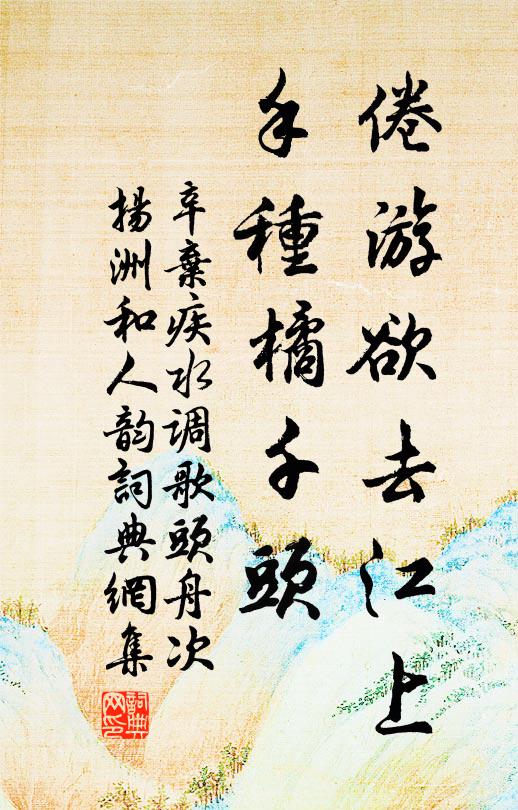 倦游欲去江上
手種橘千頭
辛棄疾水调歌頭舟次
揚洲和人韵詞典網集
詞典网印